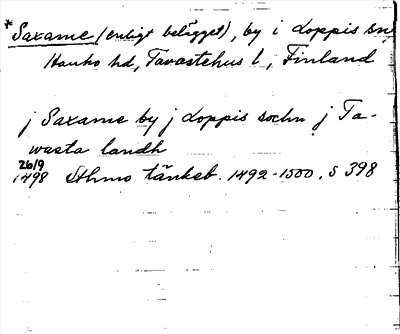 *Saxame (enligt belägget), by i Loppis sn,
Hauho hd, Tavastehus l, Finland
j Saxame by j Loppis sochn j Ta-
wasta landh
26/9
1498 Sthmo tänkeb. 1492-1500, s 398